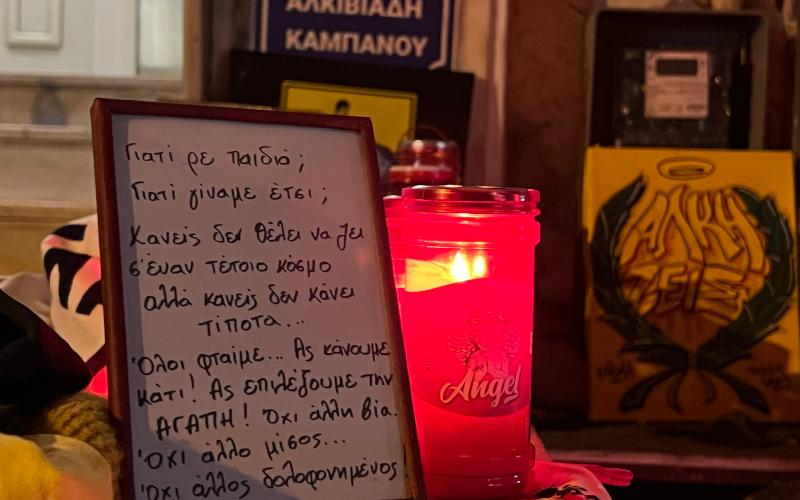 ΑΛΚΙΒΙΑΔΗ
ΚΑΜΠΑΝΟΥ
Γιατί ρε παιδιά;
Γιατί γίναμε έτσι;
Κανείς δεν θέλει να ζει
σ'έναν τέτοιο κόσμο
αλλά κανείς δεν κάνει
τίποτα...
Όλοι φταίμε... Ας κάνουμε
κάτι! Ας επιλέξουμε την
ΑΓΑΠΗ! Όχι άλλη βία.
Όχι άλλο μίσος...
Όχι άλλος δολοφονημένος!
Angel
ΑΛΚΗ
ΖΕΙΣ